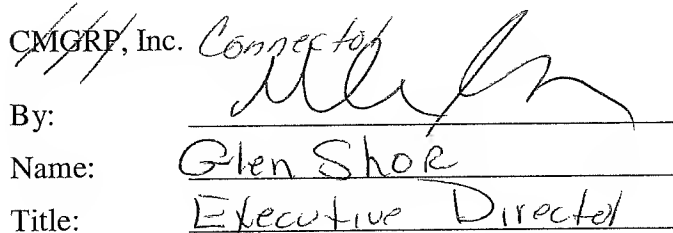 CMGRP, Inc. Connector
By:
Name: Glen Shor
Title: Executive Director